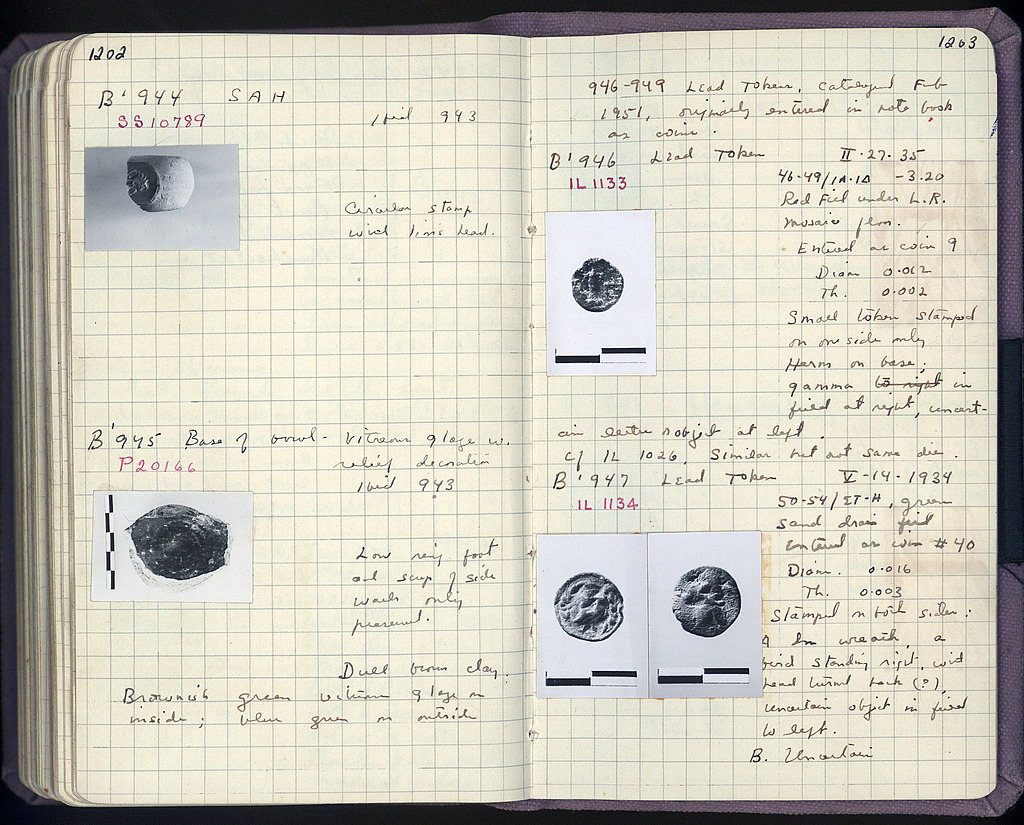 1202
B' 944 SAH
SS 10789
Ibid 943
Circular stamp
with lion's head.
B' 945 Base of bowl - Vitreous glaze w.
P 20166
relief decoration
Ibid 943
Low ring foot
and scrap of side
walls only
preserved.
Dull brown clay.
Brownish green vitreous glaze on
inside; blue green on outside
1203
946-949 Lead Tokens, catalogued Feb
1951, originally entered in note book
as coins.
B' 946 Lead Token II-27-35
IL 1133
46-49/ΙΑ-ΙΔ -3.20
Red Fill under L.R.
mosaic floor.
Entered as coin 9
Diam 0.012
Th. 0.002
Small token stamped
on one side only
Herm on base;
gamma to right in
field at right, uncert-
ain letter or object at left.
cf IL 1026, Similar but not same die.
B' 947 Lead Token V-14-1934
IL 1134
50-54/ΣΤ-Η, green
sand drain fill
Entered as coin #40
Diam. 0.016
Th. 0.003
Stamped on both sides:
A In wreath, a
bird standing right, with
head turned back (?),
uncertain object in field
to left.
B. Uncertain